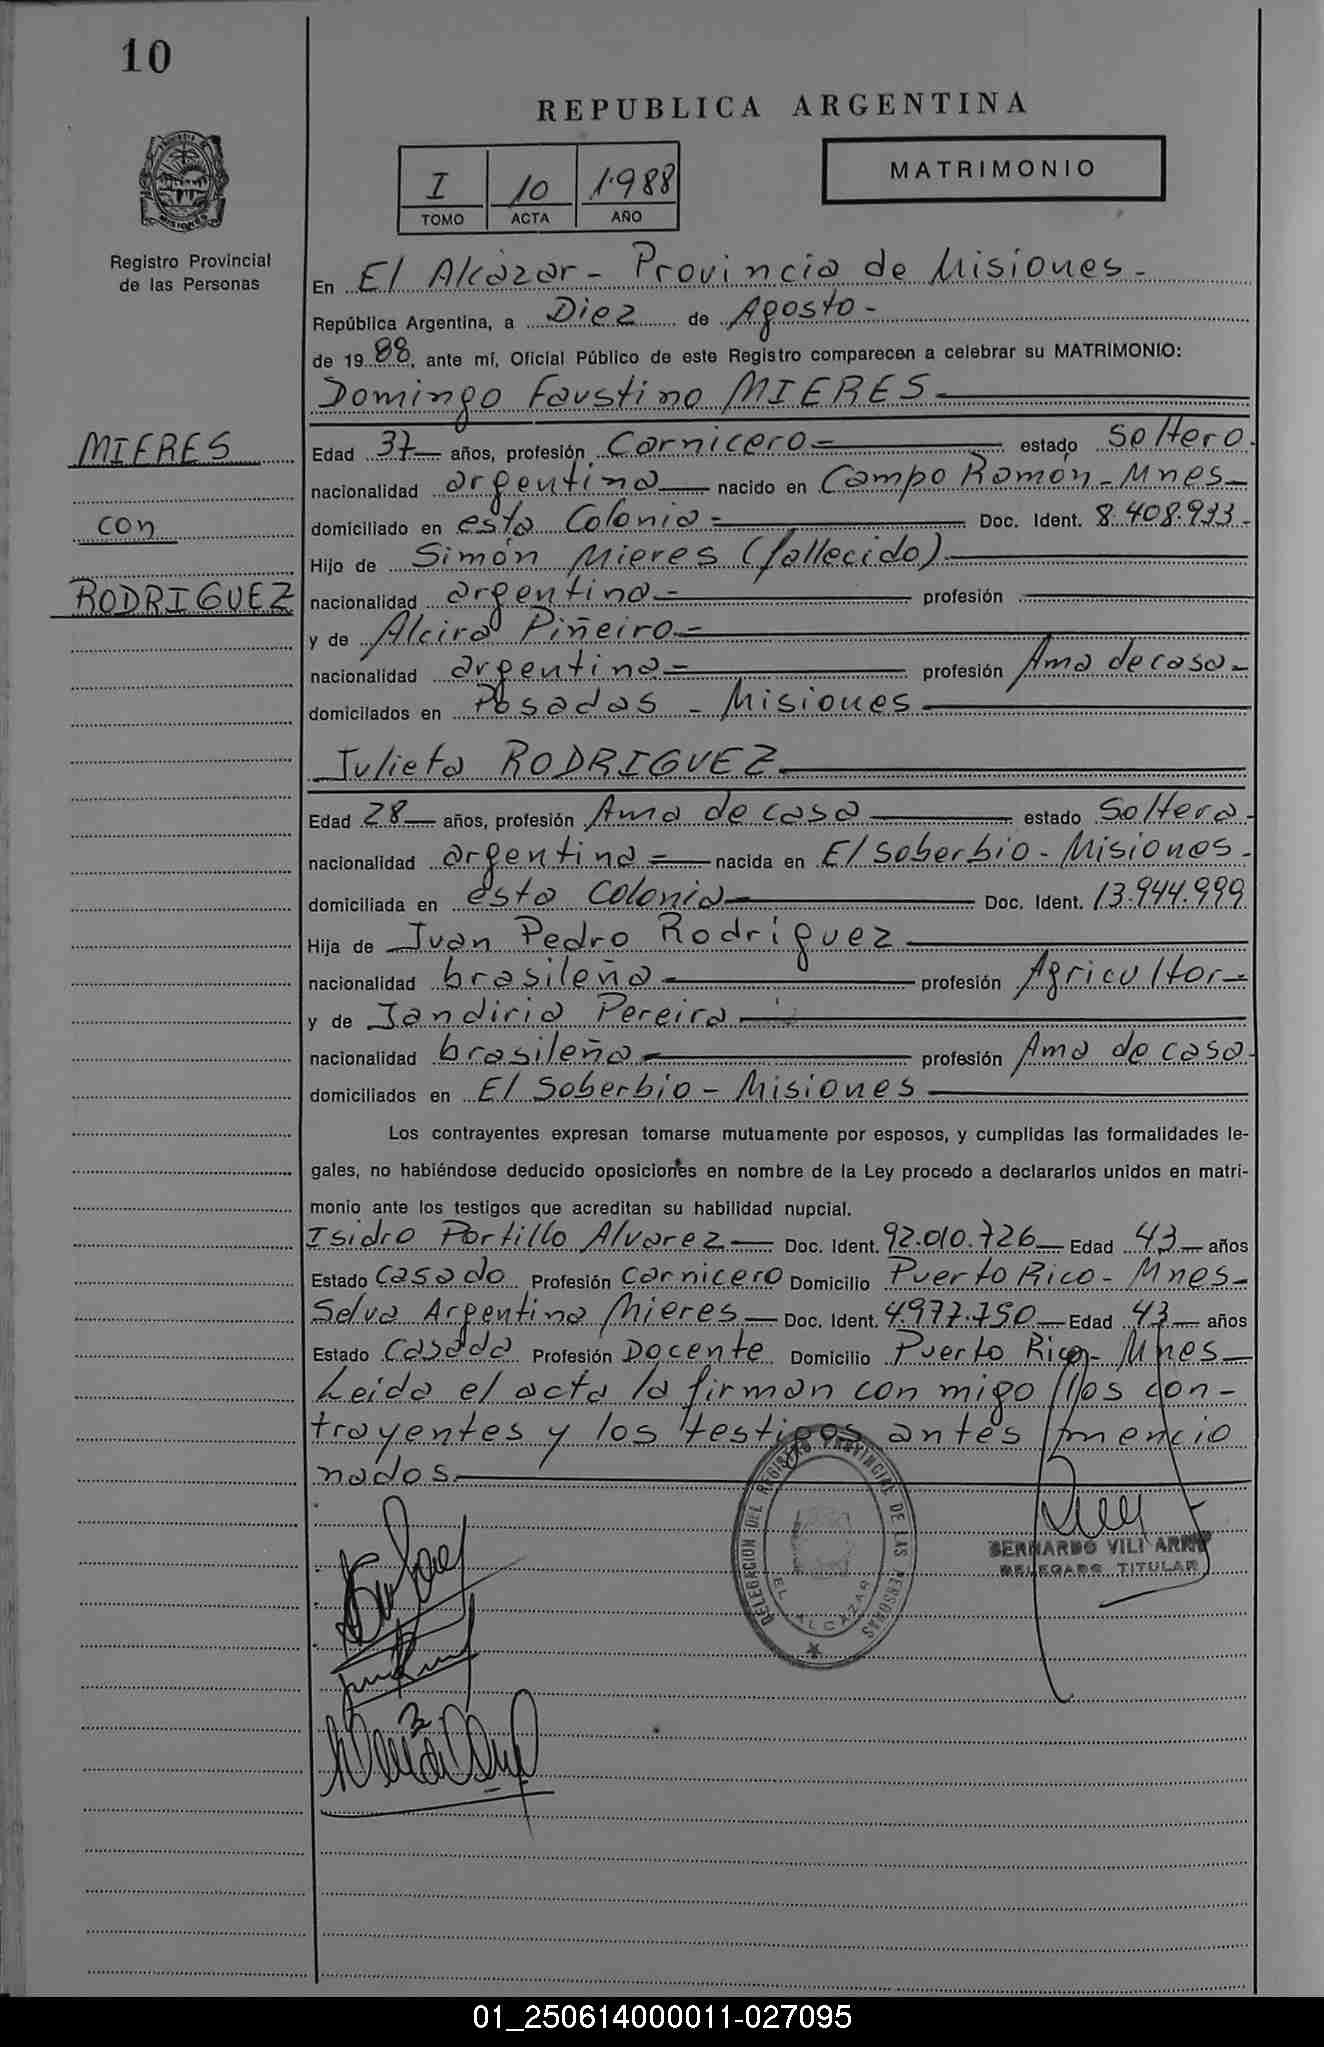 10
REPUBLICA ARGENTINA
MATRIMONIO
I 10 1.988
TOMO ACTA AÑO
Registro Provincial
de las Personas
En El Alcázar - Provincia de Misiones -
República Argentina, a Diez de Agosto -
de 19 88, ante mí, Oficial Público de este Registro comparecen a celebrar su MATRIMONIO:
Domingo Faustino MIERES
MIERES
con
RODRIGUEZ
Edad 37 años, profesión Carnicero = estado Soltero.
nacionalidad argentina nacido en Campo Ramón - Mnes -
domiciliado en esta Colonia = Doc. Ident. 8.408.933 -
Hijo de Simón Mieres (fallecido)
nacionalidad argentina = profesión
y de Alcira Piñeiro =
nacionalidad argentina = profesión Ama de casa -
domicilados en Posadas - Misiones
Julieta RODRIGUEZ
Edad 28 años, profesión Ama de casa estado Soltera -
nacionalidad argentina = nacida en El Soberbio - Misiones -
domiciliada en esta Colonia Doc. Ident. 13.944.999
Hija de Juan Pedro Rodríguez
nacionalidad brasileña - profesión Agricultor -
y de Jandiria Pereira
nacionalidad brasileña profesión Ama de casa -
domiciliados en El Soberbio - Misiones
Los contrayentes expresan tomarse mutuamente por esposos, y cumplidas las formalidades le-
gales, no habiéndose deducido oposiciones en nombre de la Ley procedo a declararlos unidos en matri-
monio ante los testigos que acreditan su habilidad nupcial.
Isidro Portillo Alvarez Doc. Ident. 92.010.726 Edad 43 años
Estado Casado Profesión Carnicero Domicilio Puerto Rico - Mnes -
Selva Argentina Mieres Doc. Ident. 4.977.750 Edad 43 años
Estado Casada Profesión Docente Domicilio Puerto Rico - Mnes
Leida el acta la firman con migo los con-
trayentes y los testigos antes mencio
nados.
DELEGACION DEL REGISTRO PROVINCIAL DE LAS PERSONAS
EL ALCAZAR
BERNARDO VILI
DELEGADO TITULAR
01_250614000011-027095